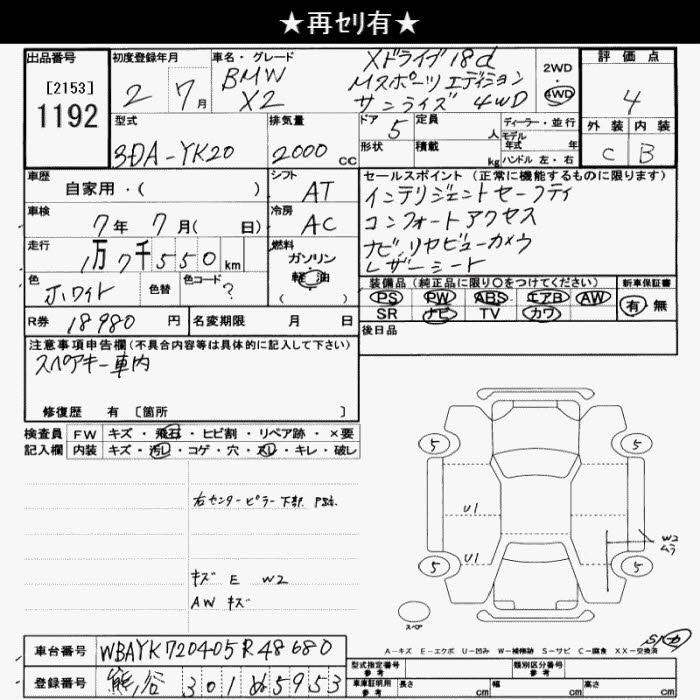 ★再ｾﾘ有★
出品番号
[2153]
1192
初度登録年月
2年 7月
車名・グレード
BMW
X2
Xドライブ18d
Mスポーツ エディション
サンライズ 4WD
2WD
4WD
評価点
4
外装 内装
C B
型式
3DA-YK20
排気量
2000 CC
ドア 5
定員 人
形状
積載 kg
ディーラー・並行
モデル年式 年
ハンドル 左・右
車歴
自家用・( )
シフト
AT
セールスポイント (正常に機能するものに限ります)
インテリジェントセーフティ
コンフォートアクセス
ナビ、リヤビューカメラ
レザーシート
車検
7年 7月( 日)
冷房
AC
走行
1万7千550km
燃料
ガソリン
軽油
( )
色
ホワイト
色替
色コード
?
装備品 (純正品に限り○をつけてください)
PS PW ABS エアB AW
SR ナビ TV カワ
新車保証書
有 無
R券 18980円
名変期限 月 日
後日品
注意事項申告欄 (不具合内容等は具体的に記入して下さい)
スペアキー車内
修復歴 有 〔箇所 〕
検査員記入欄
FW キズ・飛石・ヒビ割・リペア跡・×要
内装 キズ・汚レ・コゲ・穴・スレ・キレ・破レ
右センターピラー下部
キズ E W2
AW キズ
5
5
U1
U1
W2
ムラ
5
5
スペア
A-キズ E-エクボ U-凹み W-補修跡 S-サビ C-腐食 XX-交換済
車台番号 WBAYK720405R48680
登録番号 熊谷 301 ぬ 5953
型式指定番号 参考
類別区分番号 参考
車庫証明用 参考
長さ cm
幅 cm
高さ cm